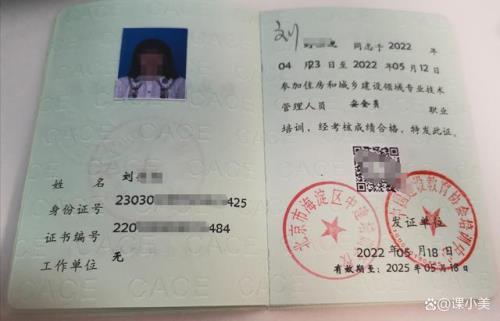 姓 名 刘
身份证号 23030 425
证书编号 220 484
工作单位 无
CACE
刘
同志于 2022 年
04 月 23 日至 2022 年 05 月 12 日
参加住房和城乡建设领域专业技术
管理人员 安全员 职业
培训，经考核成绩合格，特发此证。
北京市海淀区中建
建设教育协会培训中心
发证单位
2022 年 05 月 18 日
有效期至：2025 年 05 月 18 日
知乎 @课小美